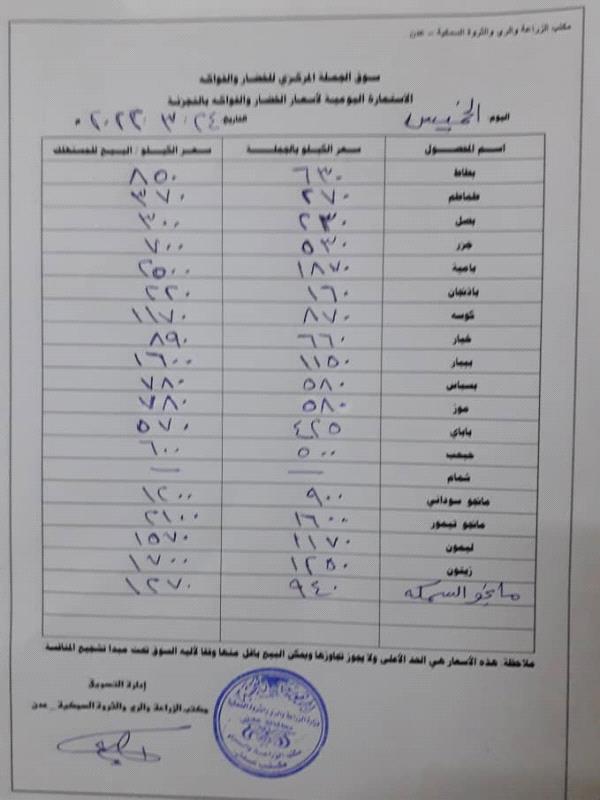 مكتب الزراعة والري والثروة السمكية - عدن
سوق الجملة المركزي للخضار والفواكه
الاستمارة اليومية لأسعار الخضار والفواكه بالتجزئة
اليوم الخميس التاريخ ٢٤ . ٣ . ٢٠٢٢ م
اسم المحصول سعر الكيلو بالجملة سعر الكيلو / البيع للمستهلك
بطاط ٦٣٠ ٨٥٠
طماطم ٢٧٠ ٣٧٠
بصل ٢٣٠ ٣٠٠
جزر ٥٣٠ ٧٠٠
بامية ١٨٧٠ ٢٥٠٠
باذنجان ١٦٠ ٢٢٠
كوسه ٨٧٠ ١١٧٠
خيار ٦٦٠ ٨٩٠
بيبار ١١٥٠ ١٦٠٠
بسباس ٥٨٠ ٧٨٠
موز ٥٨٠ ٧٨٠
باباي ٤٢٥ ٥٧٠
حبحب ٥٠٠ ٦٠٠
شمام — —
مانجو سوداني ٩٠٠ ١٢٠٠
مانجو تيمور ١٦٠٠ ٢١٠٠
ليمون ١١٧٠ ١٥٧٠
زيتون ١٢٥٠ ١٧٠٠
مانجو السمكه ٩٤٠ ١٢٧٠
ملاحظة: هذه الأسعار هي الحد الأعلى ولا يجوز تجاوزها ويمكن البيع باقل منها وفقا لآليه السوق تحت مبدا تشجيع المنافسة
إدارة التسويق
مكتب الزراعة والري والثروة السمكية _ عدن